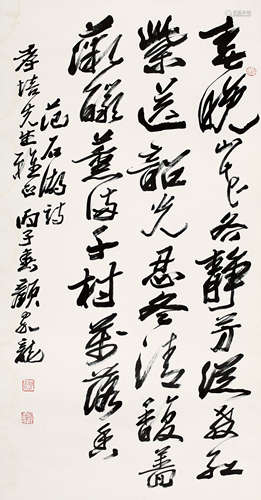 春晚山花各靜芳從教紅
紫送韶光忍冬清馥薔
薇釅薰滿千村萬落香
范石湖詩
孝培先生雅正 丙子春 顏家龍